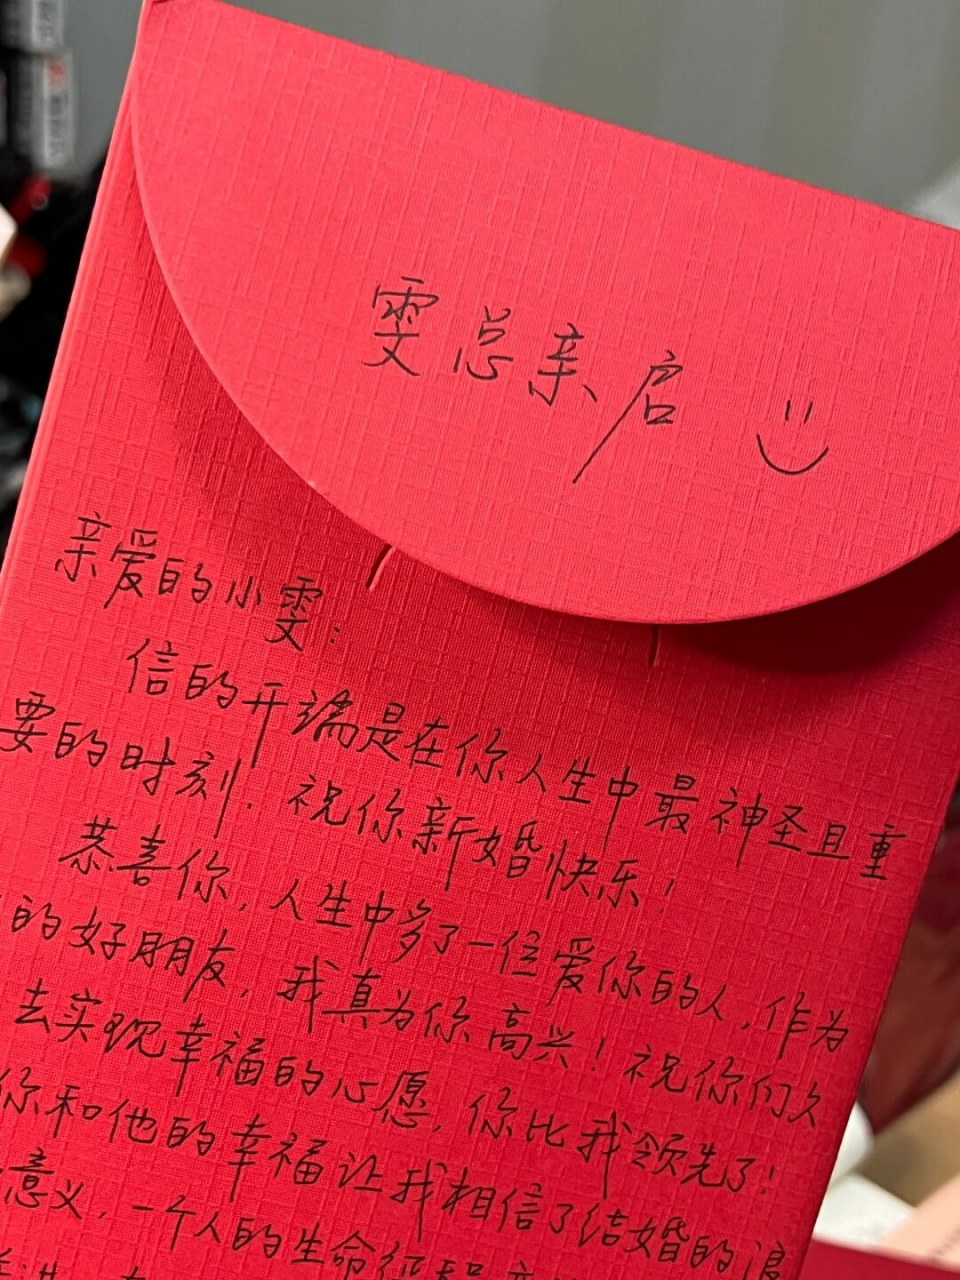 雯总亲启
亲爱的小雯：
信的开端是在你人生中最神圣且重
要的时刻．祝你新婚快乐！
恭喜你，人生中多了一位爱你的人，作为
的好朋友，我真为你高兴！祝你们久
去实现幸福的心愿，你比我领先了！
你和他的幸福让我相信了结婚的浪
意义，一个人的生命征程